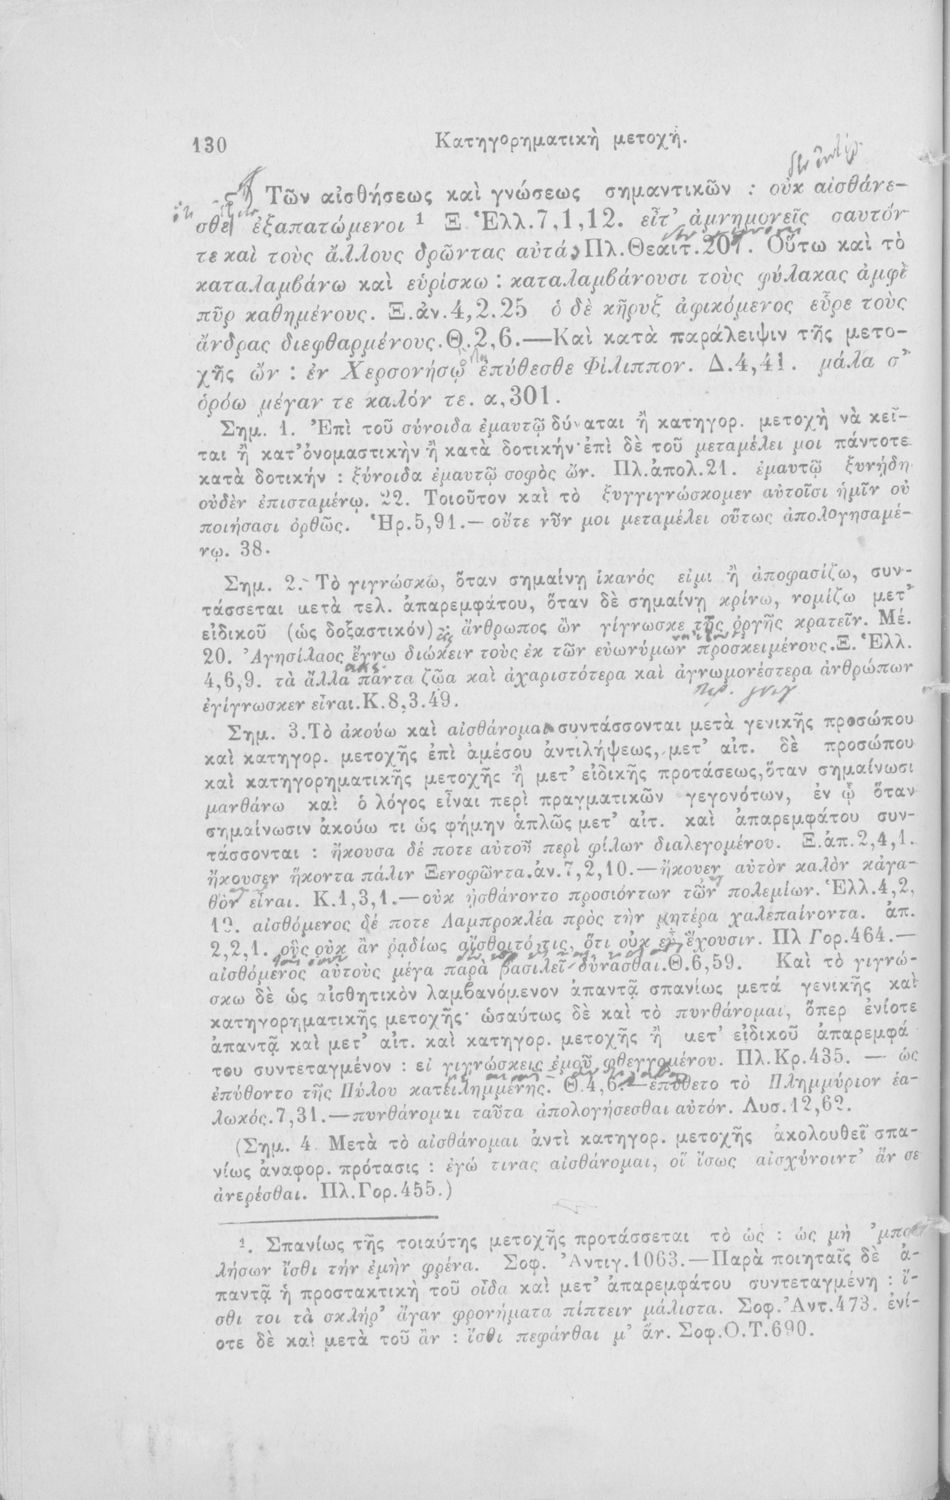 130 Κατηγορηματικὴ μετοχή.
Τῶν αἰσθήσεως καὶ γνώσεως σημαντικῶν : οὐκ αἰσθάνε-
σθε ἐξαπατώμενοι ¹ Ξ. Ἑλλ.7,1,12. εἶτ' ἀμνημονεῖς σαυτόν
τε καὶ τοὺς ἄλλους δρῶντας αὐτά; Πλ.Θεαίτ.207. Οὕτω καὶ τὸ
καταλαμβάνω καὶ εὑρίσκω : καταλαμβάνουσι τοὺς φύλακας ἀμφὶ
πῦρ καθημένους. Ξ.ἀν.4,2.25 ὁ δὲ κῆρυξ ἀφικόμενος εὗρε τοὺς
ἄνδρας διεφθαρμένους.Θ.2,6.—Καὶ κατὰ παράλειψιν τῆς μετο-
χῆς ὤν : ἐν Χερσονήσῳ ἐπύθεσθε Φίλιππον. Δ.4,41. μάλα σ'
ὁρόω μέγαν τε καλόν τε. α,301.
Σημ. 1. Ἐπὶ τοῦ σύνοιδα ἐμαυτῷ δύναται ἢ κατηγορ. μετοχὴ νὰ κεῖ-
ται ἢ κατ' ὀνομαστικὴν ἢ κατὰ δοτικήν· ἐπὶ δὲ τοῦ μεταμέλει μοι πάντοτε
κατὰ δοτικήν : ξύνοιδα ἐμαυτῷ σοφὸς ὤν. Πλ.ἀπολ.21. ἐμαυτῷ ξυνῄδη
οὐδὲν ἐπισταμένῳ. 22. Τοιοῦτον καὶ τὸ ξυγγιγνώσκομεν αὐτοῖσι ἡμῖν οὐ
ποιήσασι ὀρθῶς. Ἡρ.5,91.— οὔτε νῦν μοι μεταμέλει οὕτως ἀπολογησαμέ-
νῳ. 38.
Σημ. 2. Τὸ γιγνώσκω, ὅταν σημαίνῃ ἱκανός εἰμι ἢ ἀποφασίζω, συν-
τάσσεται μετὰ τελ. ἀπαρεμφάτου, ὅταν δὲ σημαίνῃ κρίνω, νομίζω μετ'
εἰδικοῦ (ὡς δοξαστικόν) : ἄνθρωπος ὢν γίγνωσκε τῆς ὀργῆς κρατεῖν. Μέ.
20. Ἀγησίλαος ἔγνω διώκειν τοὺς ἐκ τῶν εὐωνύμων προσκειμένους.Ξ. Ἑλλ.
4,6,9. τὰ ἄλλα πάντα ζῷα καὶ ἀχαριστότερα καὶ ἀγνωμονέστερα ἀνθρώπων
ἐγίγνωσκεν εἶναι.Κ.8,3.49.
Σημ. 3.Τὸ ἀκούω καὶ αἰσθάνομαι συντάσσονται μετὰ γενικῆς προσώπου
καὶ κατηγορ. μετοχῆς ἐπὶ ἀμέσου ἀντιλήψεως, μετ' αἰτ. δὲ προσώπου
καὶ κατηγορηματικῆς μετοχῆς ἢ μετ' εἰδικῆς προτάσεως, ὅταν σημαίνωσι
μανθάνω καὶ ὁ λόγος εἶναι περὶ πραγματικῶν γεγονότων, ἐν ᾧ ὅταν
σημαίνωσιν ἀκούω τι ὡς φήμην ἁπλῶς μετ' αἰτ. καὶ ἀπαρεμφάτου συν-
τάσσονται : ἤκουσα δέ ποτε αὐτοῦ περὶ φίλων διαλεγομένου. Ξ.ἀπ.2,4,1.
ἤκουσεν ἥκοντα πάλιν Ξενοφῶντα.ἀν.7,2,10.—ἤκουεν αὐτὸν καλὸν κἀγα-
θὸν εἶναι. Κ.1,3,1.—οὐκ ᾐσθάνοντο προσιόντων τῶν πολεμίων. Ἑλλ.4,2,
19. αἰσθόμενος δέ ποτε Λαμπροκλέα πρὸς τὴν μητέρα χαλεπαίνοντα. ἀπ.
2,2,1. οὓς οὐκ ἂν ῥᾳδίως αἴσθοιτό τις, ὅτι οὐκ εὖ ἔχουσιν. Πλ Γορ.464.—
αἰσθόμενος αὐτοὺς μέγα παρὰ βασιλεῖ δύνασθαι.Θ.6,59. Καὶ τὸ γιγνώ-
σκω δὲ ὡς αἰσθητικὸν λαμβανόμενον ἀπαντᾷ σπανίως μετά γενικῆς καὶ
κατηγορηματικῆς μετοχῆς· ὡσαύτως δὲ καὶ τὸ πυνθάνομαι, ὅπερ ἐνίοτε
ἀπαντᾷ καὶ μετ' αἰτ. καὶ κατηγορ. μετοχῆς ἢ μετ' εἰδικοῦ ἀπαρεμφά
του συντεταγμένον : εἰ γιγνώσκεις ἐμοῦ φθεγγομένου. Πλ.Κρ.435. — ὡς
ἐπύθοντο τῆς Πύλου κατειλημμένης. Θ.4,6.—ἐπύθετο τὸ Πλημμύριον ἑα-
λωκός.7,31.—πυνθάνομαι ταῦτα ἀπολογήσεσθαι αὐτόν. Λυσ.12,62.
(Σημ. 4. Μετὰ τὸ αἰσθάνομαι ἀντὶ κατηγορ. μετοχῆς ἀκολουθεῖ σπα-
νίως ἀναφορ. πρότασις : ἐγώ τινας αἰσθάνομαι, οἳ ἴσως αἰσχύνοιντ' ἄν σε
ἀνερέσθαι. Πλ.Γορ.455.)
¹. Σπανίως τῆς τοιαύτης μετοχῆς προτάσσεται τὸ ὡς : ὡς μὴ 'μπο
λήσων ἴσθι τὴν ἐμὴν φρένα. Σοφ. Ἀντιγ.1063.—Παρὰ ποιηταῖς δὲ ἀ-
παντᾷ ἡ προστακτικὴ τοῦ οἶδα καὶ μετ' ἀπαρεμφάτου συντεταγμένη : ἴ-
σθι τοι τὰ σκλήρ' ἄγαν φρονήματα πίπτειν μάλιστα. Σοφ.Ἀντ.473. ἐνί-
οτε δὲ καὶ μετὰ τοῦ ἂν : ἴσθι πεφάνθαι μ' ἄν. Σοφ.Ο.Τ.690.